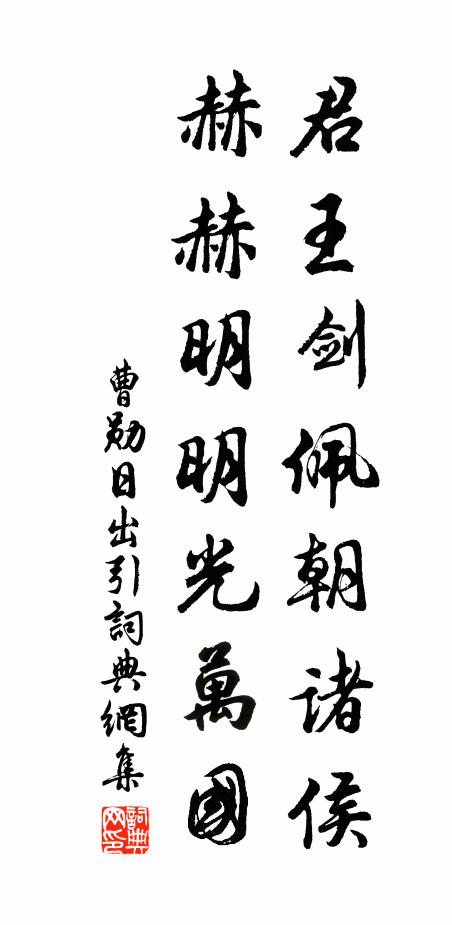 君王剑佩朝诸侯
赫赫明明光萬國
曹勛日出引詞典網集
詞典网印